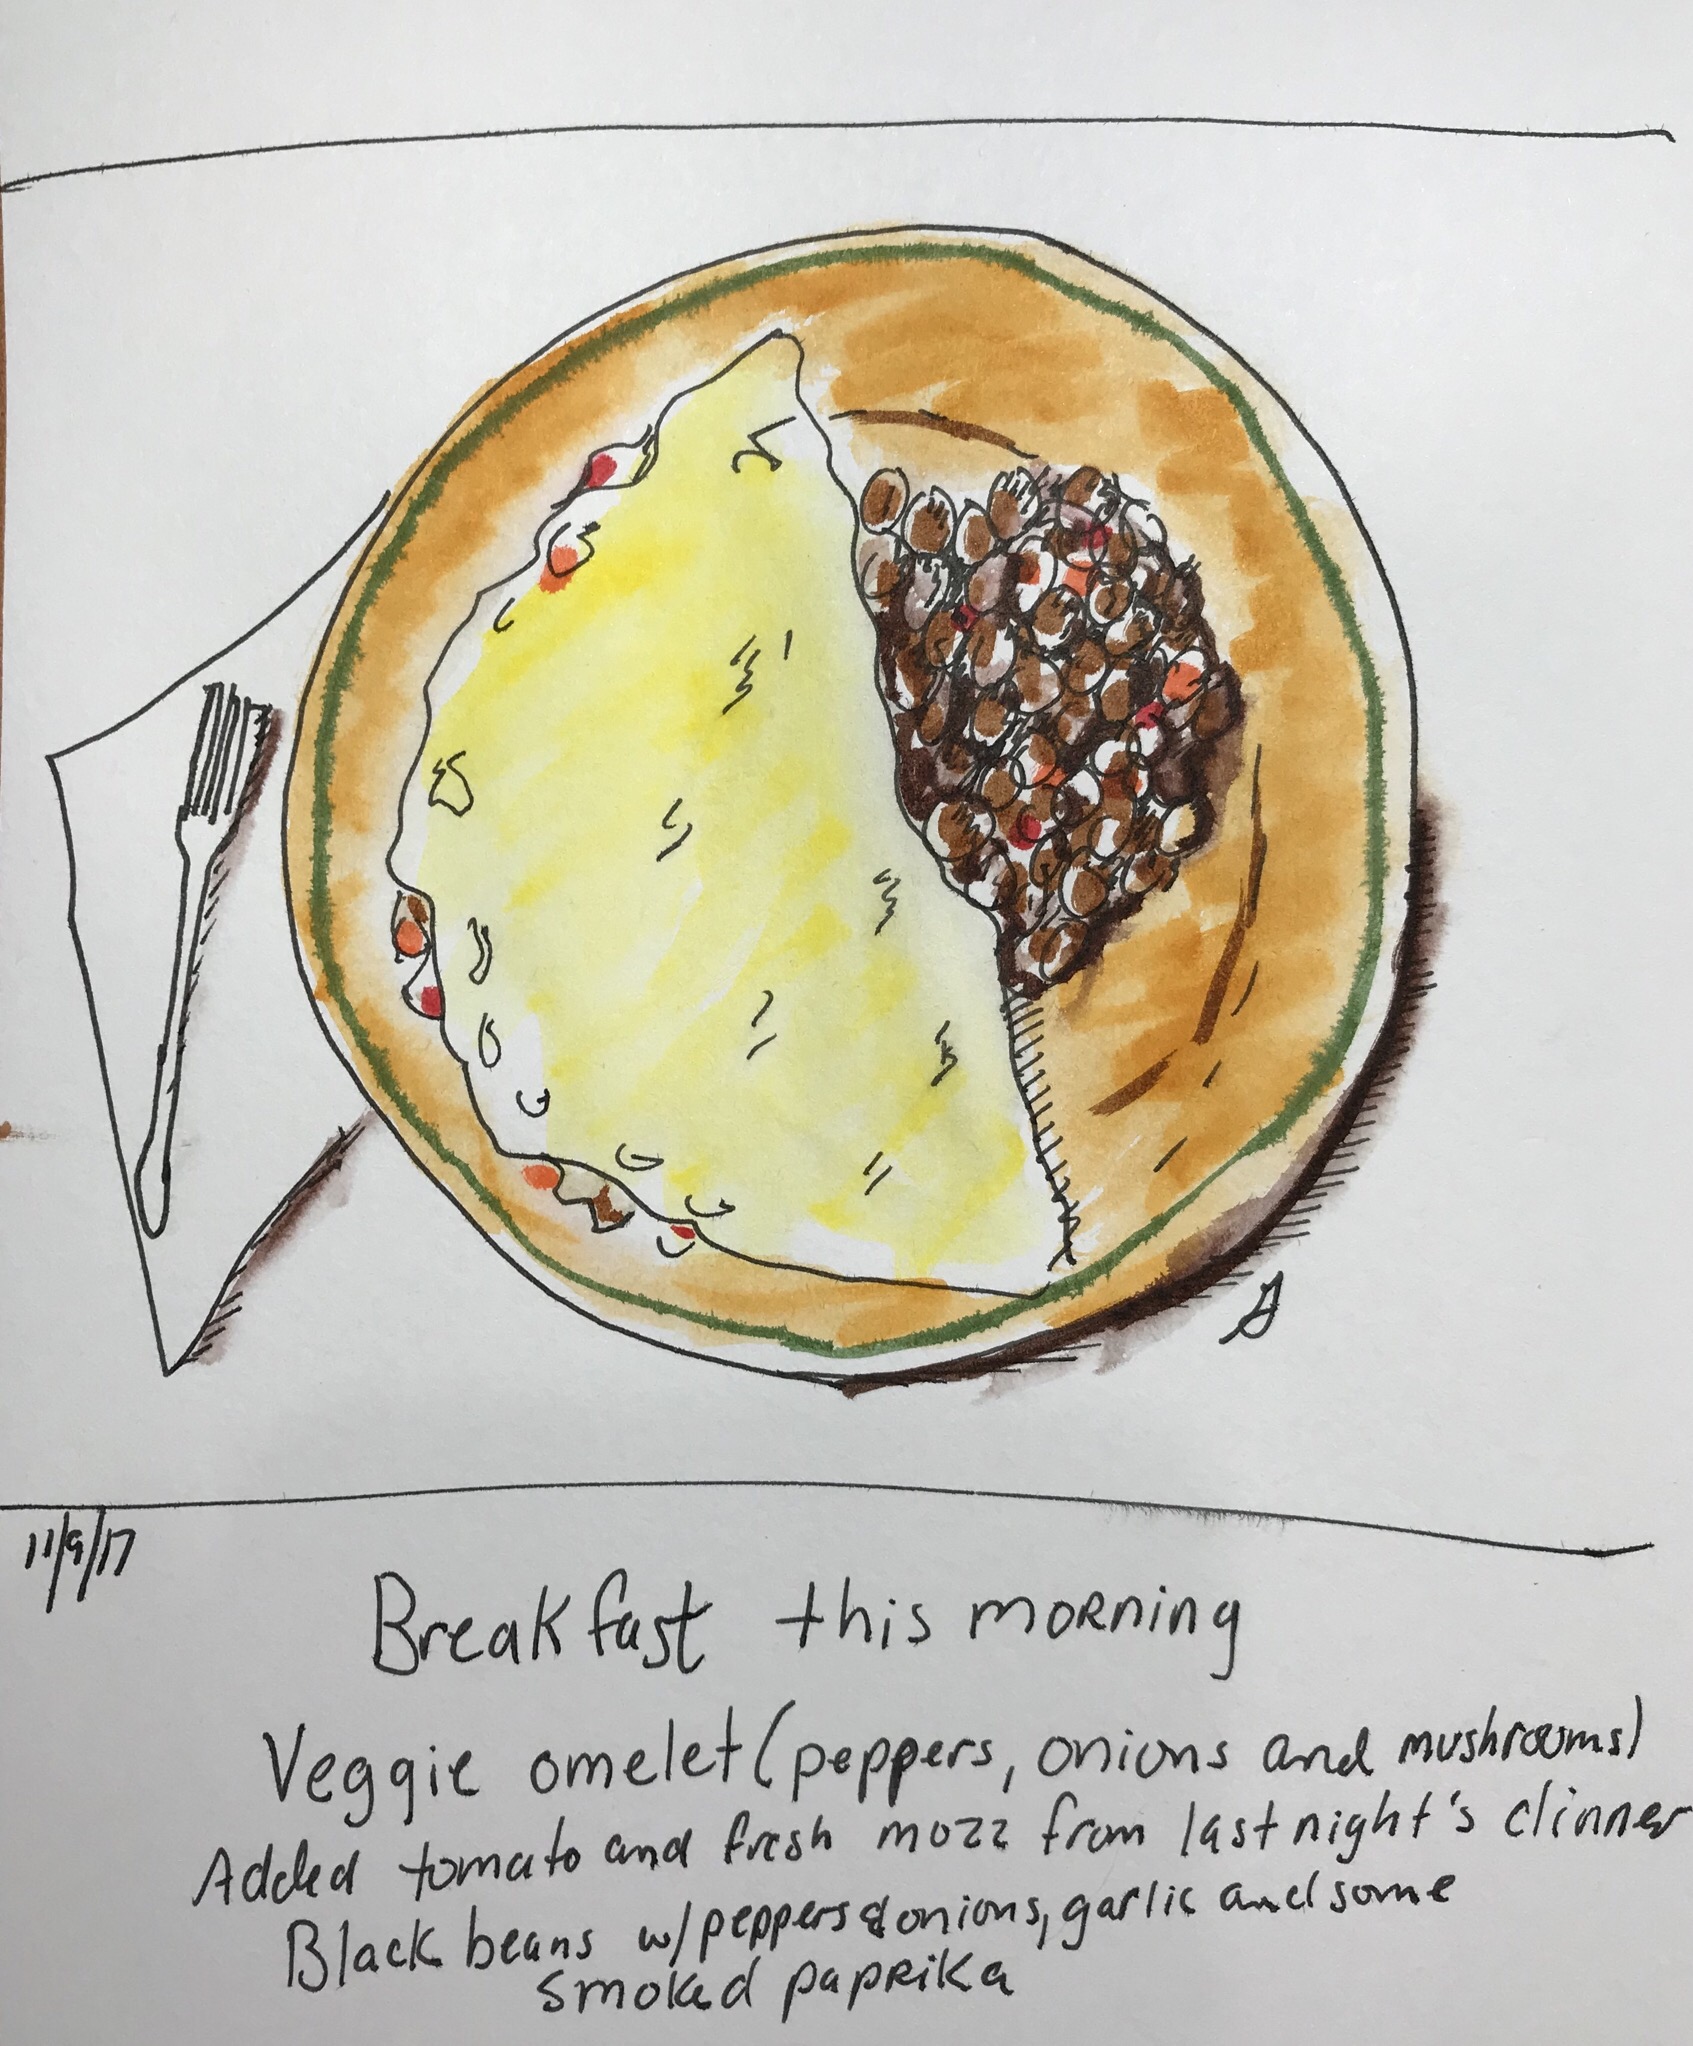 11/9/17
Breakfast this morning
Veggie omelet (peppers, onions and mushrooms)
Added tomato and fresh mozz from last night's dinner
Black beans w/peppers & onions, garlic and some
smoked paprika